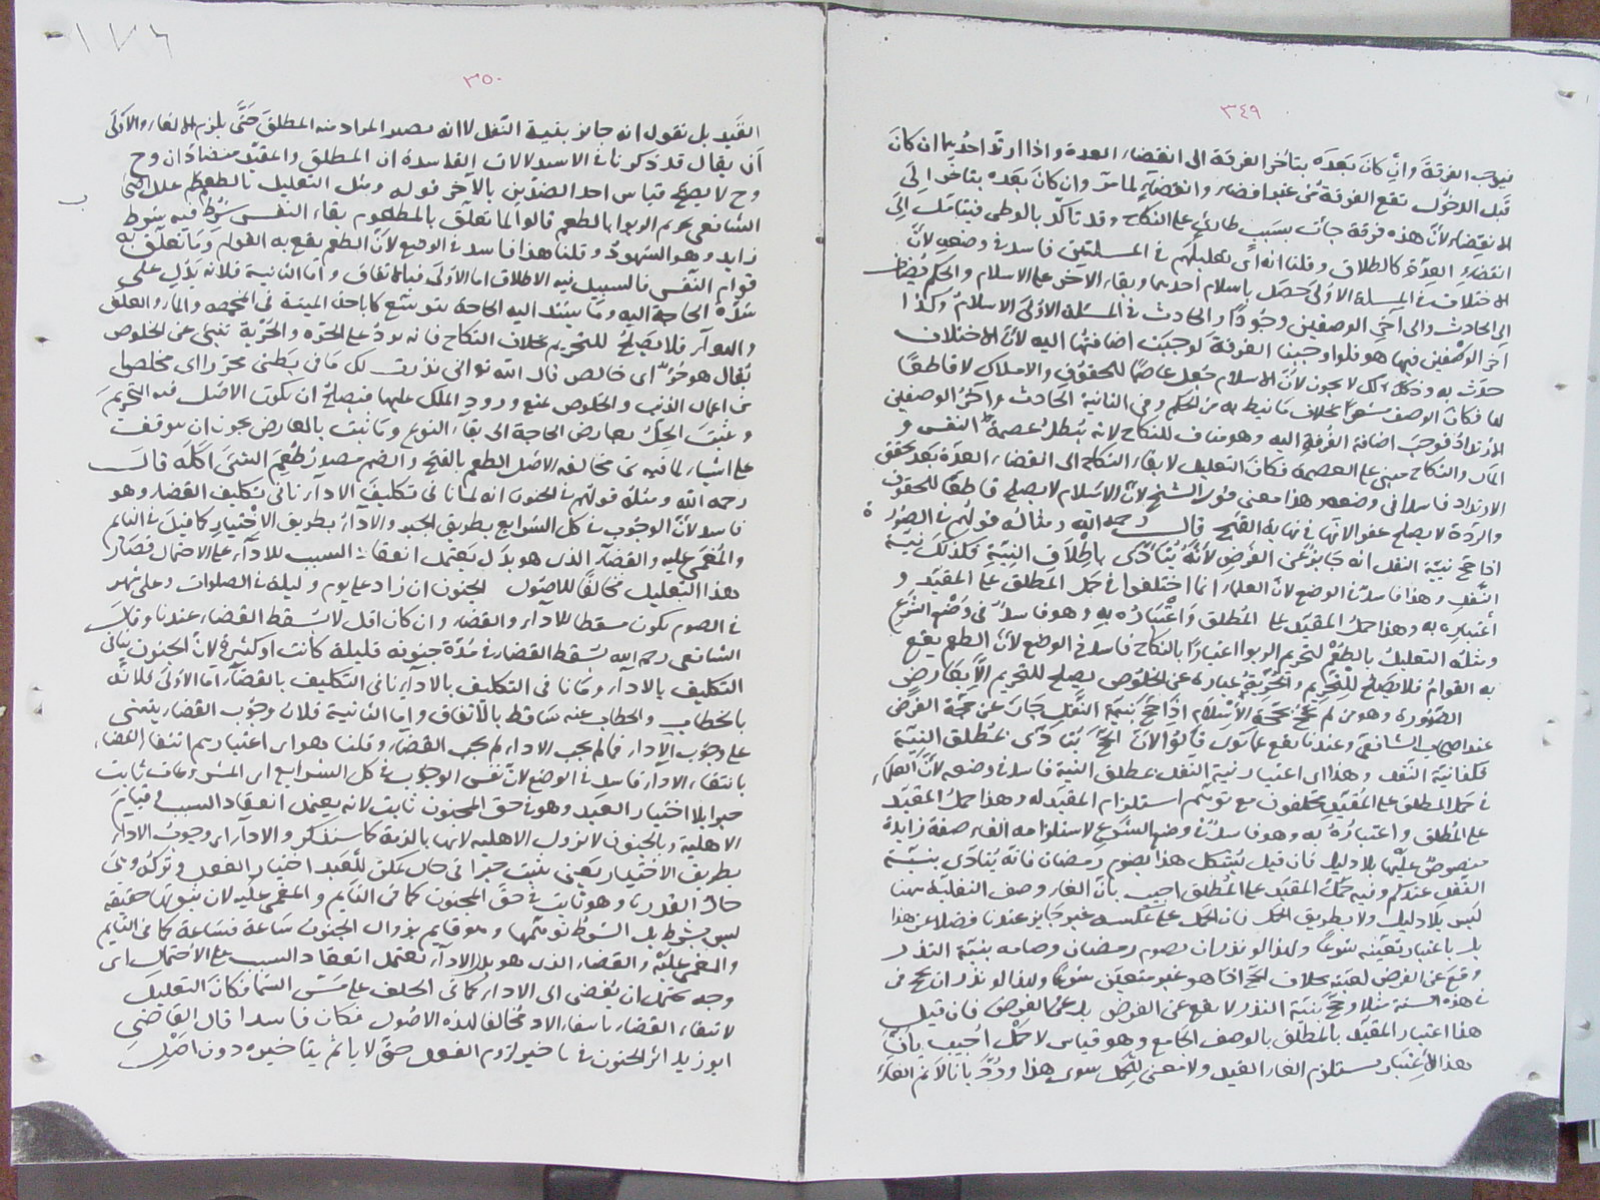 ٣٤٩
الفرقة وان كان بعده بتأخر الفرقة الى انقضاء العدة واذا ارتد احديهما ان كان
قبل الدخول تقع الفرقة من غير افضاء وانقضاء لما مر وان كان بعده بتأخر الى
الانقضاء لان هذه فرقة جاءت بسبب طارئ على النكاح وقد تأكد بالوطى فيتأمل الى
انقضاء العدة كالطلاق وقلنا انه اى تعليلكم فى المسئلتين فاسد فى وضعه لان
الاختلاف فى المسئلة الاولى حصل باسلام احديهما وبقاء الاخر على الاسلام والحكم يضاف
الى الحادث والى آخر الوصفين وجودا والحادث فى المسئلة الاولى الاسلام وكذا
آخر الوصفين فيها هو فلو اوجبنا الفرقة لوجبت اضافتها اليه لان الاختلاف
حدث به وذلك لا يجوز لان الاسلام جعل عاصما للحقوق والاملاك لا قاطعا
لها فكان الوصف بخلاف ما نيط به من الحكم وفى الثانية الحادث وآخر الوصفين
الارتداد فوجب اضافة الفرقة اليه وهو مناف للنكاح لانه يبطل عصمة النفس و
المال والنكاح مبنى على العصمة فكان التعليل لابقاء النكاح الى انقضاء العدة بعد تحقق
الارتداد فاسدا فى وضعه هذا معنى قول الشيخ لان الاسلام لا يصلح قاطعا للحقوق
والردة لا تصلح عفوا لانها فى نهاية القبح قال رحمه الله ومثاله قولهم فى الصرورة
اذا حج بنية النفل انه جائز عن الفرض لانه يتأدى باطلاق النية فكذلك نية
النفل وهذا فاسد فى الوضع لان العلماء انما اختلفوا فى حمل المطلق على المقيد و
اعتباره به وهذا حمل المقيد على المطلق واعتباره به وهو فاسد فى وضع الشرع
ومثله التعليل بالطعم لتحريم الربوا اعتبارا بالنكاح فاسد فى الوضع لان الطعم يقع
به القوام فلا يصلح للتحريم والحرية عبارة عن الخلوص يصلح للتحريم الا بعارض
الصرورة وهو من لم يحج بحجة الاسلام اذا حج بنية النفل جاز عن حجة الفرض
عند اصحاب الشافعى وعندنا يقع عما نوى قالوا لان الحج يتأدى بمطلق النية
فكذا نية النفل وهذا اى اعتبار نية النفل بمطلق النية فاسد فى وضعه لان العلماء
فى حمل المطلق على المقيد مختلفون مع توهم استلزام المقيد له وهذا حمل المقيد
على المطلق واعتباره به وهو فاسد فى وضع الشرع لاستلزامه الغاء صفة زايدة
منصوص عليها بلا دليل فان قيل يشكل هذا بصوم رمضان فانه يتأدى بنية
النفل عندكم وفيه حمل المقيد على المطلق اجيب بان الغاء وصف النفلية ههنا
ليس بلا دليل ولا بطريق الحمل فان الحمل على عكسه غير جايز عندنا فضلا عن هذا
بل باعتبار تعينه شرعا ولهذا لو نذر ان يصوم رمضان وصامه بنية النذر
وقع عن الفرض لعينه بخلاف الحج اذ هو غير متعين شرعا ولهذا لو نذر ان يحج فى
فى هذه السنة مثلا وحج بنية النذر لا يقع عن الفرض بل عن الفرض فان قيل
هذا اعتبار المقيد بالمطلق بالوصف الجامع وهو قياس لا حمل اجيب بان
هذا الاعتبار يستلزم الغاء القيد ولا معنى للحمل سوى هذا ورد بانا لا نم الغاء
١٧٦
٣٥٠
القيد بل نقول انه جايز بنية النفل لا انه يصير المراد منه المطلق حتى يلزم الالغاء والاولى
ان يقال قد ذكرنا فى الاستدلالات الفاسدة ان المطلق والمقيد متضادان وح
وح لا يصح قياس احد الضدين بالآخر قوله ومثل التعليل بالطعم علل
الشافعى تحريم الربوا بالطعم قالوا لما تعلق بالمطعوم بقاء النفس شرط فيه شرط
زايد وهو الشهود وقلنا هذا فاسد فى الوضع لان الطعم يقع به القوام وما تعلق به
قوام النفس فالسبيل فيه الاطلاق اما الاولى فبالاتفاق واما الثانية فلانه يدل على
شدة الحاجة اليه وما يشتد اليه الحاجة يتوسع كاباحة الميتة فى المخمصة والماء والعلف
والهواء فلا يصلح للتحريم بخلاف النكاح فانه يرد على الحرة والحرية تنبئ عن الخلوص
يقال هو حر اى خالص قال الله تعالى انى نذرت لك ما فى بطنى محررا اى مخلصا
من اعمال الدنيا والخلوص يمنع ورود الملك عليها فيصلح ان يكون الاصل فيه التحريم
ويثبت الحل بعارض الحاجة الى بقاء النوع وما ثبت بالعارض يجوز ان يتوقف
على اشياء لما فيه من مخالفة الاصل الطعم بالفتح والضم مصدر طعم الشئ اكله قال
رحمه الله ومثله قولهم فى الجنون انه لما نافى تكليف الاداء نافى تكليف القضاء وهو
فاسد لان الوجوب فى كل الشرايع بطريق الجبر والاداء بطريق الاختيار كما قيل فى النايم
والمغمى عليه والقضاء الذى هو بدل يعتمل انعقاد السبب للاداء على الاحتمال فصار
هذا التعليل مخالفا للاصول الجنون ان زاد على يوم وليلة فى الصلوات وعلى شهر
فى الصوم يكون مسقطا للاداء والقضاء وان كان اقل لا يسقط القضاء عندنا وقال
الشافعى رحمه الله يسقط القضاء فى مدة جنونه قليلة كانت او كثيرة لان الجنون ينافى
التكليف بالاداء وما نافى التكليف بالاداء نافى التكليف بالقضاء اما الاولى فلانه
بالخطاب والخطاب عنه ساقط بالاتفاق واما الثانية فلان وجوب القضاء يبتنى
على وجوب الاداء فما لم يجب الاداء لم يجب القضاء وقلنا هو اى اعتبارهم انتفاء القضاء
بانتفاء الاداء فاسد فى الوضع لان نفس الوجوب فى كل الشرايع اى المشروعات ثابت
جبرا بلا اختيار العبد وهو فى حق المجنون ثابت لانه يعتمل انعقاد السبب فى قيام
الاهلية وبالجنون لا تزول الاهلية لانها بالذمة كما سنذكر والاداء اى وجوب الاداء
بطريق الاختيار يعنى يثبت جبرا فى حال يمكن للعبد اختيار الفعل وتركه وهى
حال القدرة وهو ثابت فى حق المجنون كما فى النايم والمغمى عليه لان ثبوتها حقيقة
ليس بشرط بل الشرط توهمها وهو قايم بزوال الجنون ساعة فساعة كما فى النايم
والمغمى عليه والقضاء الذى هو بدل الاداء يعتمل انعقاد السبب على الاحتمال اى
وجه يحتمل ان يفضى الى الاداء كما فى الحلف على مس السماء فكان التعليل
لانتفاء القضاء بانتفاء الاداء مخالفا لهذه الاصول فكان فاسدا قال القاضى
ابو زيد اثر الجنون فى تاخير لزوم الفعل حتى لا ياثم بتاخيره دون اصل